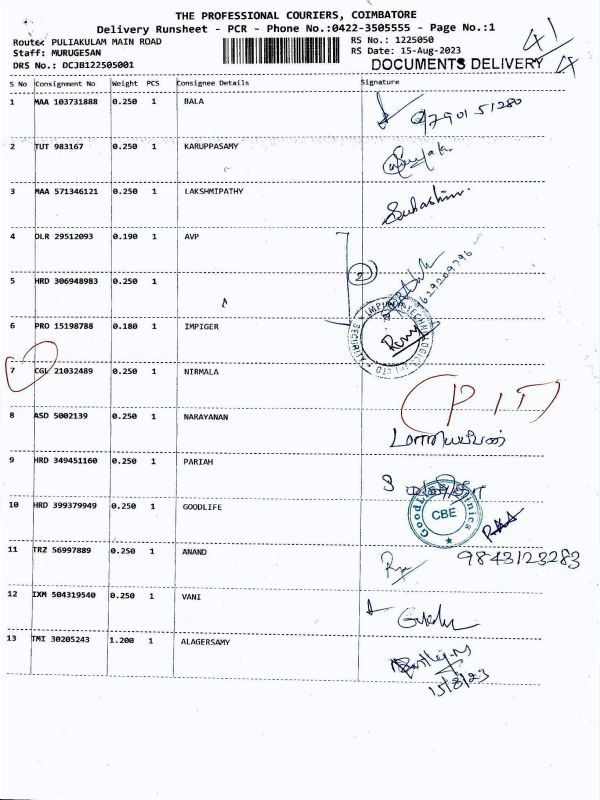 THE PROFESSIONAL COURIERS, COIMBATORE
Delivery Runsheet - PCR - Phone No.:0422-3505555 - Page No.:1
Route: PULIAKULAM MAIN ROAD
RS No.: 1225050
Staff: MURUGESAN
RS Date: 15-Aug-2023
DRS No.: DCJB122505001
DOCUMENTS DELIVERY
S No Consignment No Weight PCS Consignee Details Signature
1 MAA 103731888 0.250 1 BALA
9790151280
2 TUT 983167 0.250 1 KARUPPASAMY
3 MAA 571346121 0.250 1 LAKSHMIPATHY
4 DLR 29512093 0.190 1 AVP
2
5 HRD 306948983 0.250 1
6 PRO 15198788 0.180 1 IMPIGER
7 CGL 21032489 0.250 1 NIRMALA
8 ASD 5002139 0.250 1 NARAYANAN
9 HRD 349451160 0.250 1 PARIAH
10 HRD 399379949 0.250 1 GOODLIFE
CBE
11 TRZ 56997889 0.250 1 ANAND
9843123283
12 IXM 504319540 0.250 1 VANI
13 TMI 30205243 1.200 1 ALAGERSAMY
15/8/23